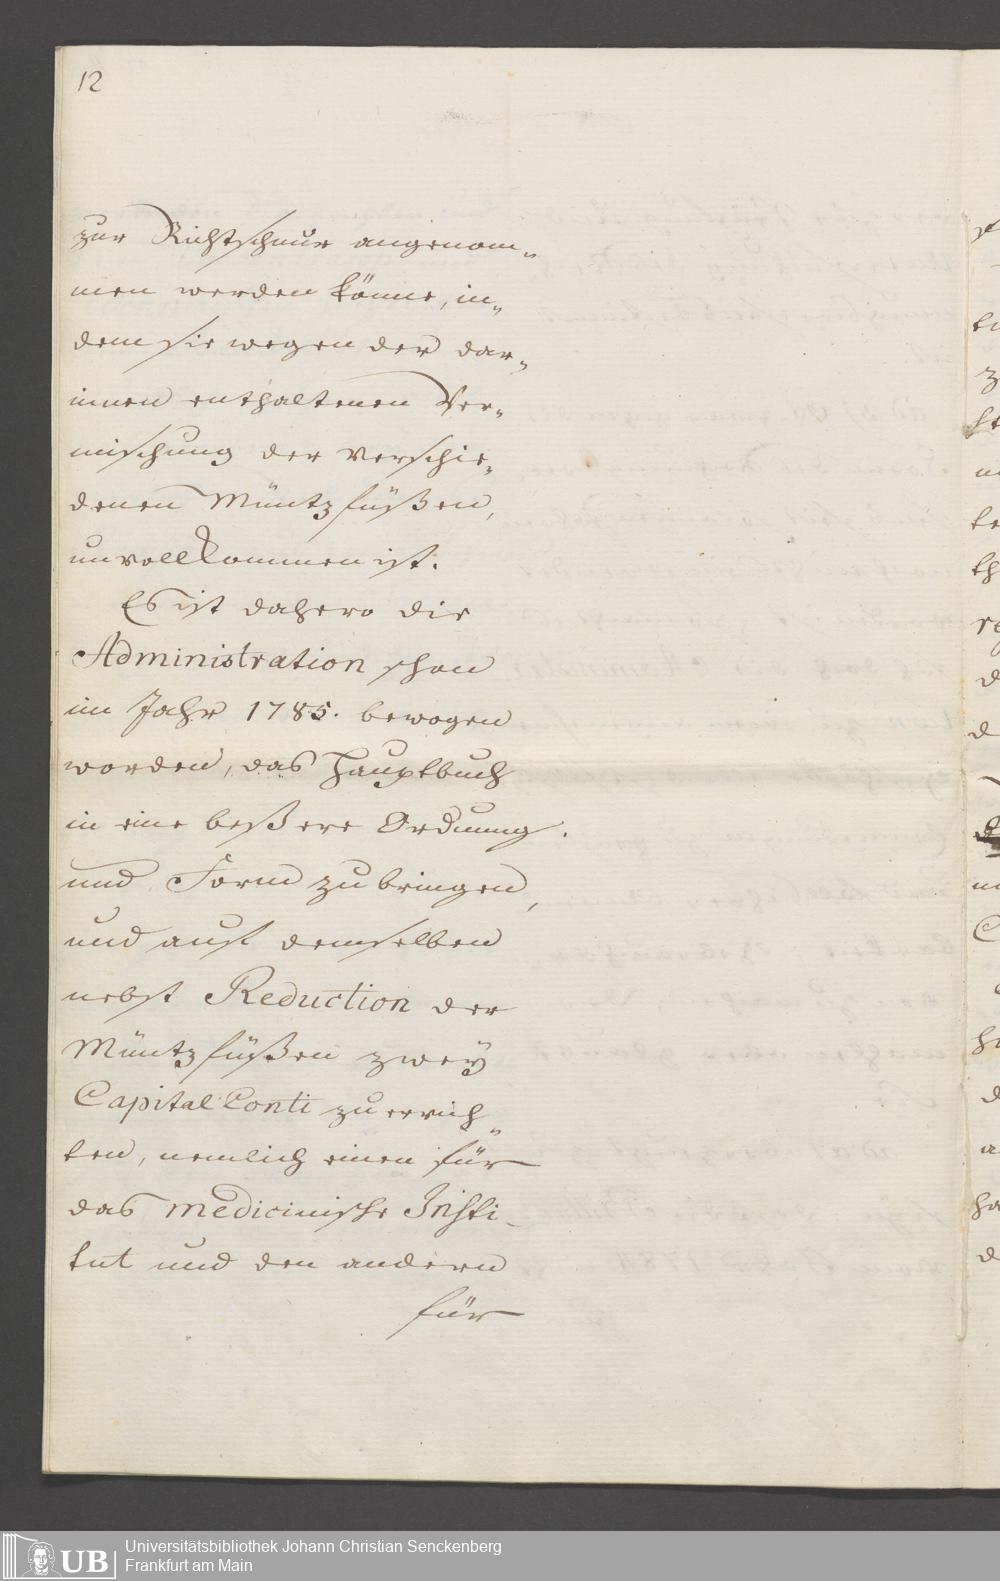 12
zur Richtschnur angenom„
men werden könne, in„
dem sie wegen der dar„
innen enthaltenen Ver„
mischung der verschie„
denen Müntzfüßen,
unvollkommen ist.
Es ist dahero die
Administration schon
im Jahr 1785. bewogen
worden, das Hauptbuch
in eine beßere Ordnung
und Form zu bringen,
und aus demselben
nebst Reduction der
Müntzfüßen zwey
Capital Conti zu errich„
ten, nemlich einen für
das medicinische Insti-
tut und den andern
für
UB
Universitätsbibliothek Johann Christian Senckenberg
Frankfurt am Main